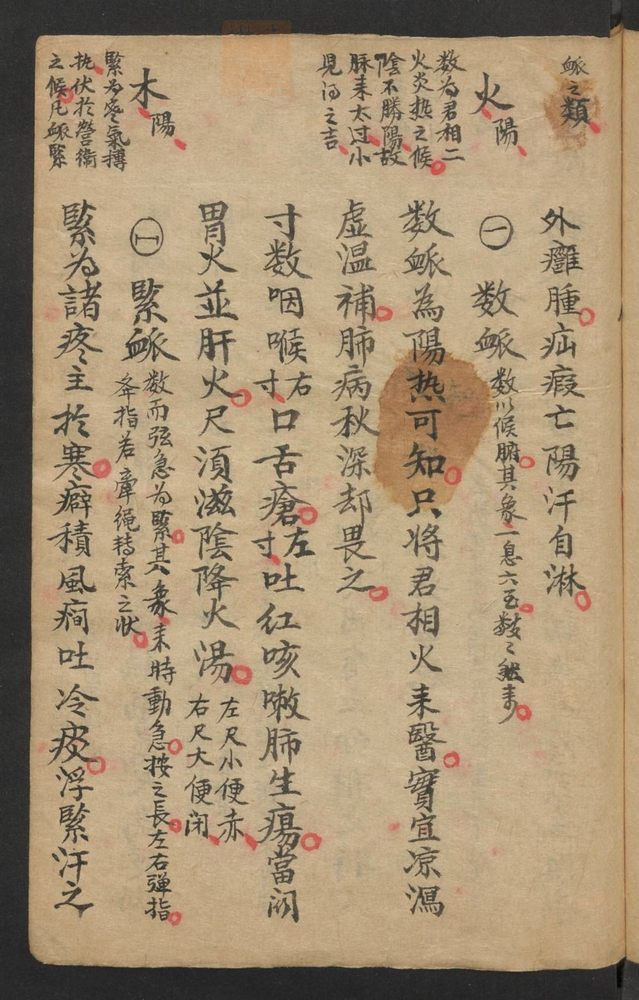 脈之類
外癰腫疝瘕亡陽汗自淋
火陽
数為君相二
火炎热之候
陰不勝陽故
脉来太过小
見得之吉
㊀数脈数以候腑其象一息六至数々然来
数脈為陽热可知只将君相火来醫實宜凉瀉
虚温補肺病秋深却畏之
寸数咽喉右寸口舌瘡左寸吐紅咳嗽肺生瘍當関
胃火並肝火尺須滋陰降火湯左尺小便赤
右尺大便闭
木陽
緊為寒氣搏
执伏於營衛
之候凡脈緊
㊁緊脈数而弦急為緊其象来時動急按之長左右彈指
牽指若牽繩轉索之状
緊為諸疼主於寒癖積風癇吐冷痰浮緊汗之